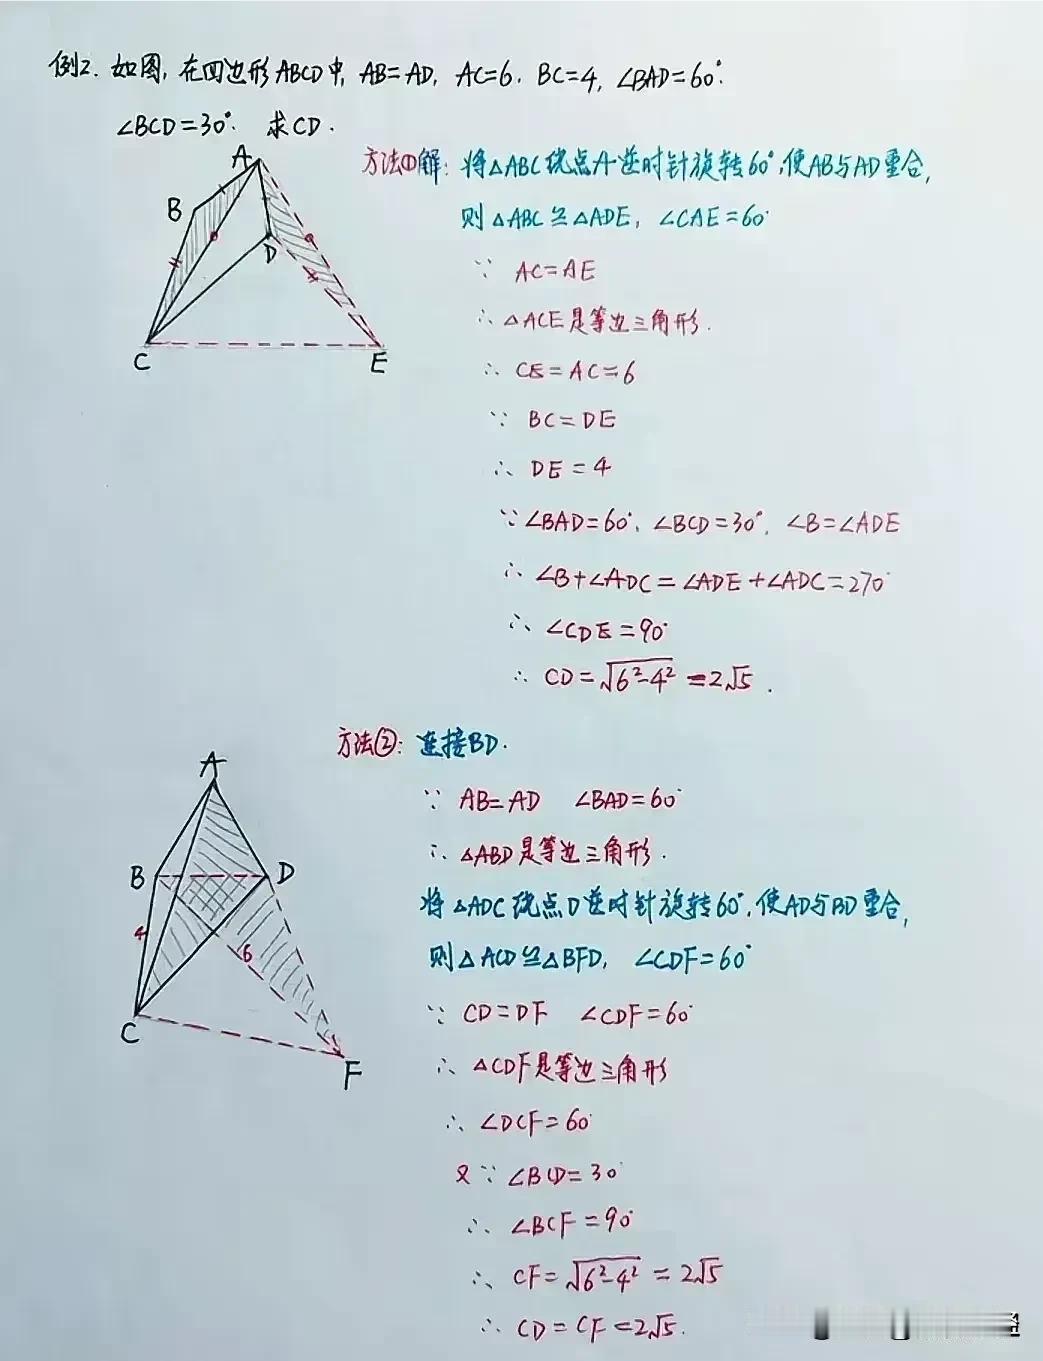 例2. 如图, 在四边形ABCD中, AB=AD, AC=6. BC=4, ∠BAD=60°.
∠BCD=30°. 求CD.
方法①解: 将△ABC绕点A逆时针旋转60°,使AB与AD重合,
则△ABC≌△ADE, ∠CAE=60°
∵ AC=AE
∴ △ACE是等边三角形.
∴ CE=AC=6
∵ BC=DE
∴ DE=4
∵ ∠BAD=60°, ∠BCD=30°, ∠B=∠ADE
∴ ∠B+∠ADC=∠ADE+∠ADC=270°
∴ ∠CDE=90°
∴ CD=√(6²-4²)=2√5.
A
B
D
C
E
方法②: 连接BD.
∵ AB=AD ∠BAD=60°
∴ △ABD是等边三角形.
将△ADC绕点D逆时针旋转60°,使AD与BD重合,
则△ACD≌△BFD, ∠CDF=60°
∵ CD=DF ∠CDF=60°
∴ △CDF是等边三角形
∴ ∠DCF=60°
又∵ ∠BCD=30°
∴ ∠BCF=90°
∴ CF=√(6²-4²)=2√5
∴ CD=CF=2√5.
A
B
D
4
6
C
F